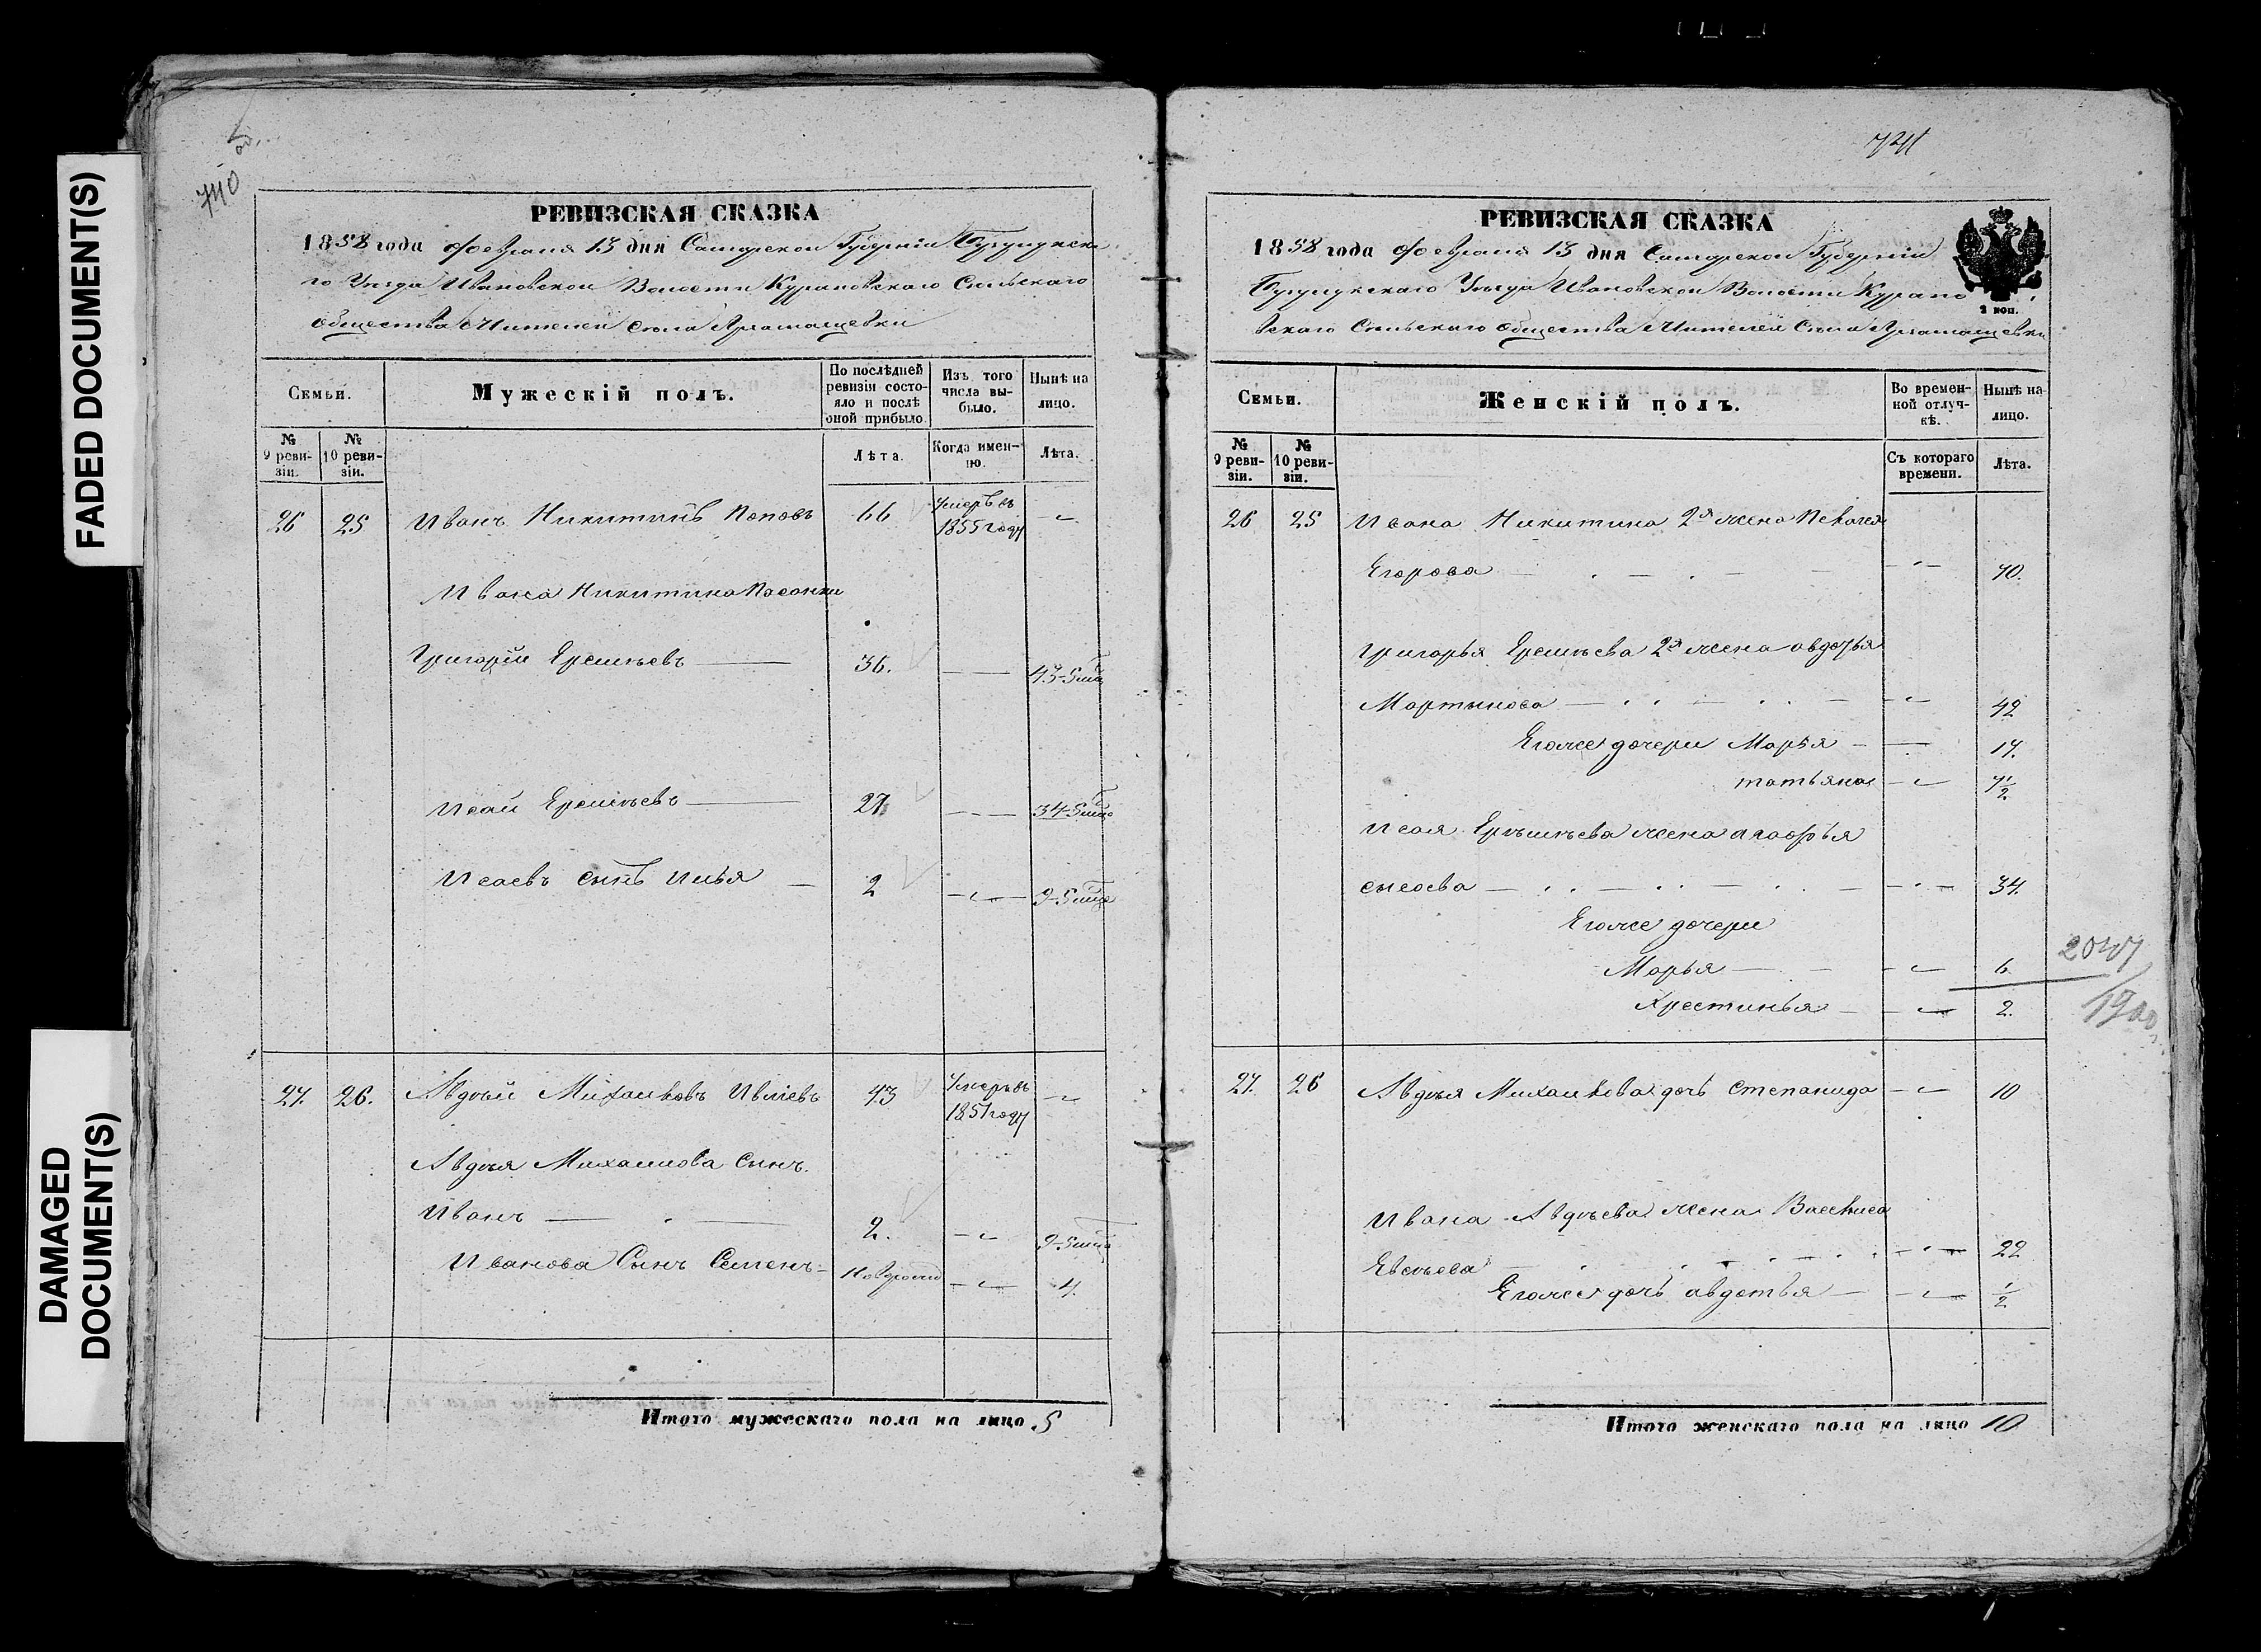 FADED DOCUMENT(S)
DAMAGED
DOCUMENT(S)
740
об.
РЕВИЗСКАЯ СКАЗКА
1858 года февраля 13 дня Самарской Губернiи Бузулукска
го Уѣзда Ивановской Волости Курановскаго Сельскаго
общества Жителей села
Семьи.
Мужескiй полъ.
По послѣдней ревизiи состояло и послѣ оной прибыло.
Изъ того числа выбыло.
Нынѣ на лицо.
№ 9 ревизiи.
№ 10 ревизiи.
Лѣта.
Когда именно.
Лѣта.
26 25 Иванъ Никитинъ Поповъ 66 Умеръ въ 1855 году
Ивана Никитина Пасынки
Григорiй Еремѣевъ 36. 43-5
Исай Еремѣевъ 27 34-5
Исаевъ сынъ Илья 2 9-5
27. 26. Авдѣй Михайловъ Ивлiевъ 43 Умеръ въ 1851 году
Авдѣя Михайлова Сынъ.
Иванъ 2. 9-5
Иванова Сынъ Семенъ Новорожд 4.
Итого мужескаго пола на лицо 5
741
РЕВИЗСКАЯ СКАЗКА
1858 года февраля 13 дня Самарской Губернiи
Бузулукскаго Уѣзда Ивановской Волости Курано
вскаго Сельскаго общества Жителей Села
2 коп.
Семьи.
Женскiй полъ.
Во временной отлучкѣ.
Нынѣ на лицо.
№ 9 ревизiи.
№ 10 ревизiи.
Съ котораго времени.
Лѣта.
26 25 Ивана Никитина 2я жена Пелагея
Егорова 70.
Григорья Еремѣева 2я жена авдотья
Мартынова 42
Егоже дочери Марья 17.
татьяна 7 1/2
Исая Ерѣмѣева жена агафья
сысоева 34.
Егоже дочери
Марья 6.
Хрестинья 2.
27. 26 Авдѣя Михайлова дочь Степанида 10
Ивана Авдѣева жена Василиса
Евсѣева 22
Егоже дочь авдотья 1/2
Итого женскаго пола на лицо 10